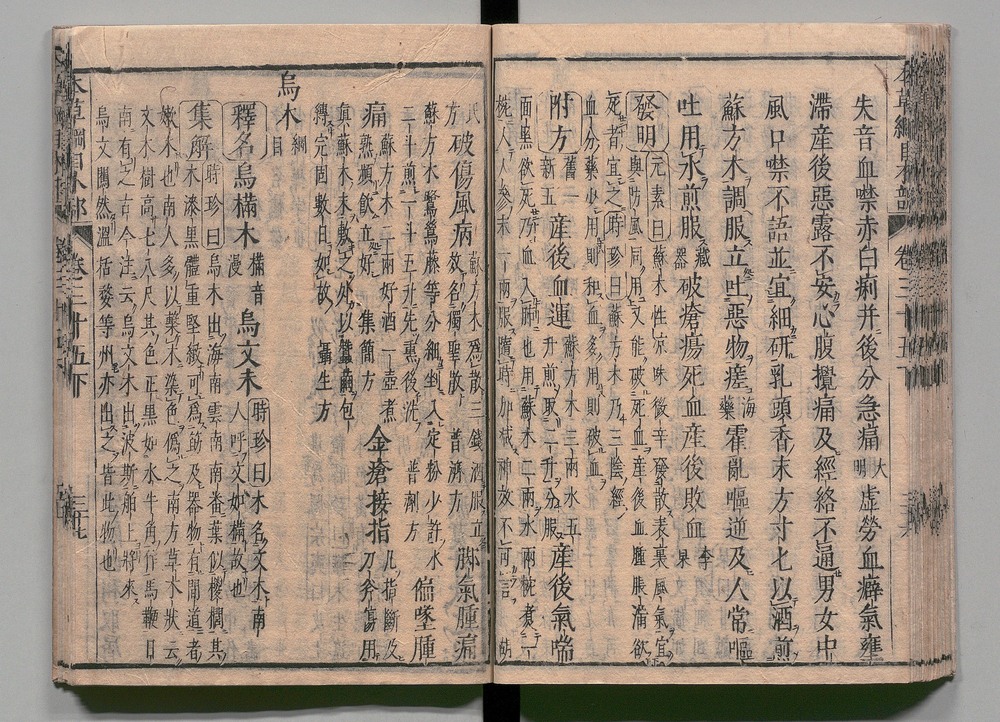 失音血噤赤白痢并後分急痛大明虛勞血癖氣壅
滯産後惡露不安心腹攪痛及經絡不通男女中
風口噤不語並宜細研乳頭香末方寸匕以酒煎
蘇方木調服立吐惡物瘥海藥霍亂嘔逆及人常嘔
吐用水煎服藏器破瘡瘍死血産後敗血李杲
發明元素曰蘇木性凉味微辛發散表裏風氣宜
與防風同用又能破死血産後血腫脹滿欲
死者宜之時珍曰蘇方木乃三陰經
血分藥少用則和血多用則破血
附方舊二新五産後血運蘇方木三兩水五升煎取二升分服産後氣喘
面黑欲死乃血入肺也用蘇木二兩水兩碗煮一
椀入人參末一兩服隨時加減神效不可言胡
氏破傷風病蘇方木爲散三錢酒服立效名獨聖散普濟方脚氣腫痛
蘇方木鷺鷥藤等分細剉入定粉少許水
二斗煎一斗五升先熏後洗普濟方偏墜腫
痛蘇方木二兩好酒一壺煮熟頻飲立好集簡方金瘡接指凡指斷及刀斧傷用
真蘇木末敷之外以蠶繭包
縛完固數日如故攝生方
烏木綱目
釋名烏樠木樠音漫烏文木時珍曰木名文木南人呼文如樠故也
集解時珍曰烏木出海南雲南南番葉似椶櫚其
木漆黑體重堅緻可爲筯及器物有間道者
嫩木也南人多以藥木染色僞之南方草木狀云
文木樹高七八尺其色正黑如水牛角作馬鞭日
南有之古今注云烏文木出波斯舶上將來
烏文闕然溫括婺等州亦出之皆此物也